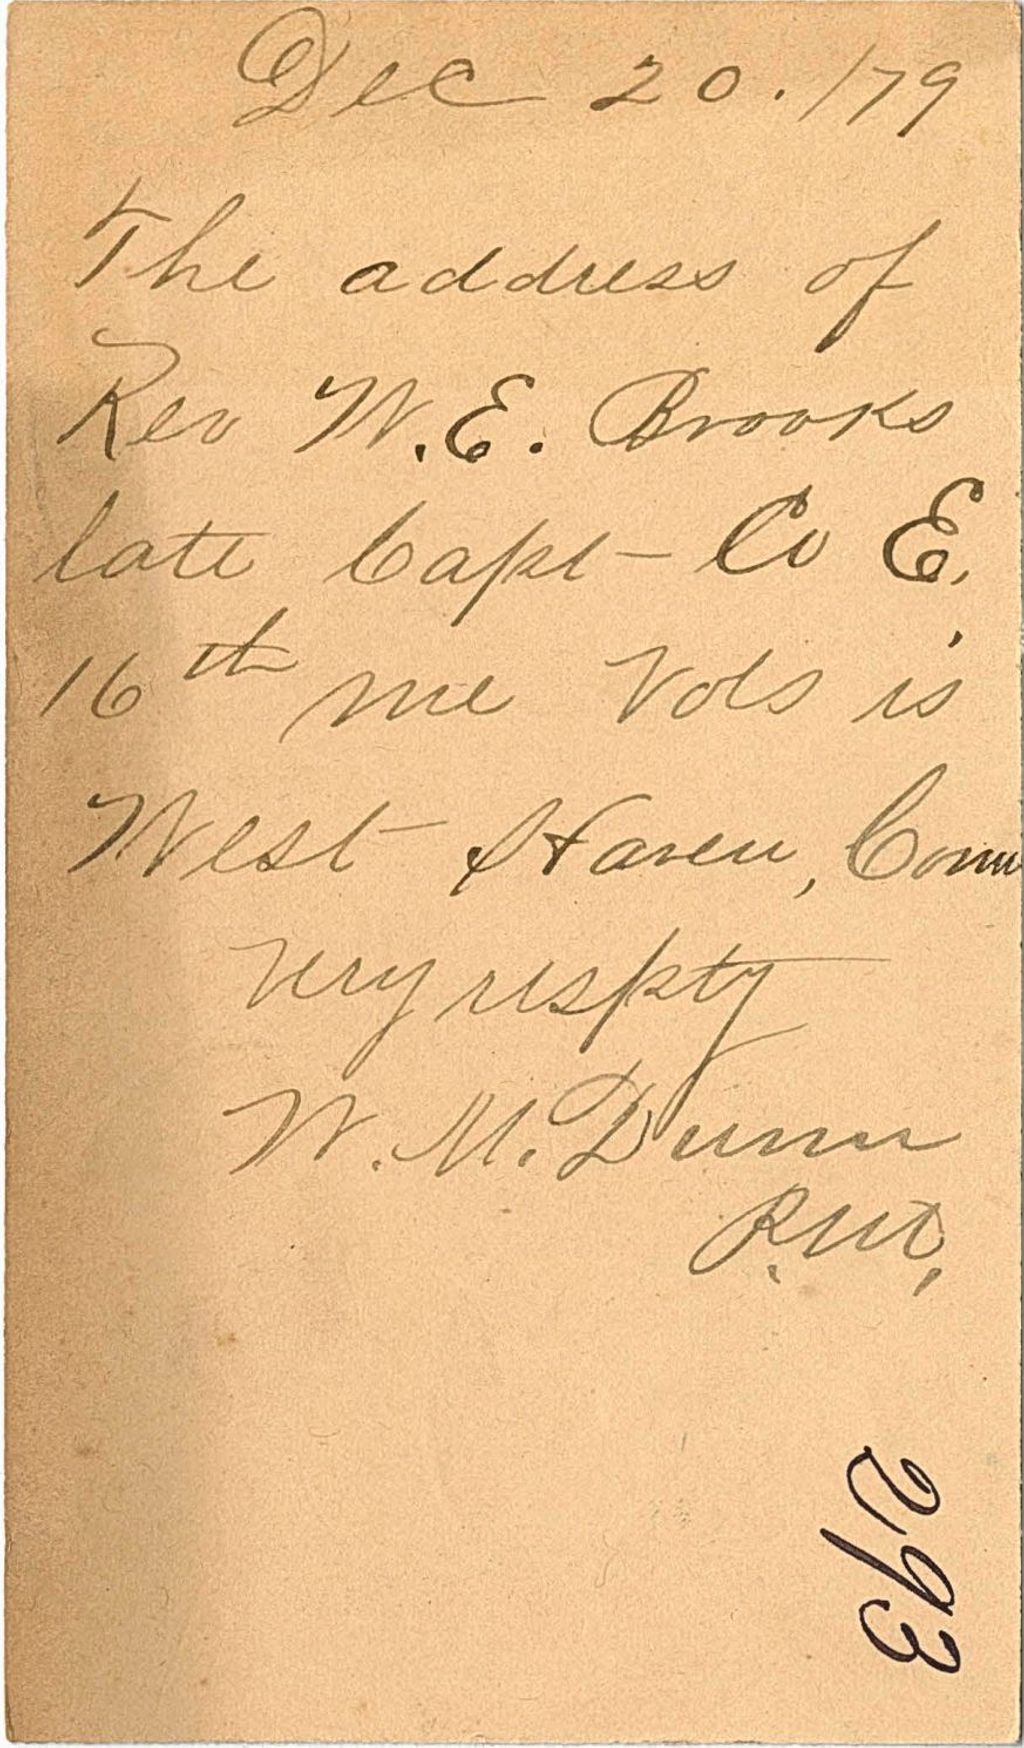 Dec 20. /79
The address of
Rev W. E. Brooks
late Capt - Co E,
16th me Vols is
West Haven, Conn
very respty
W. M. Dunn
P.M.
293